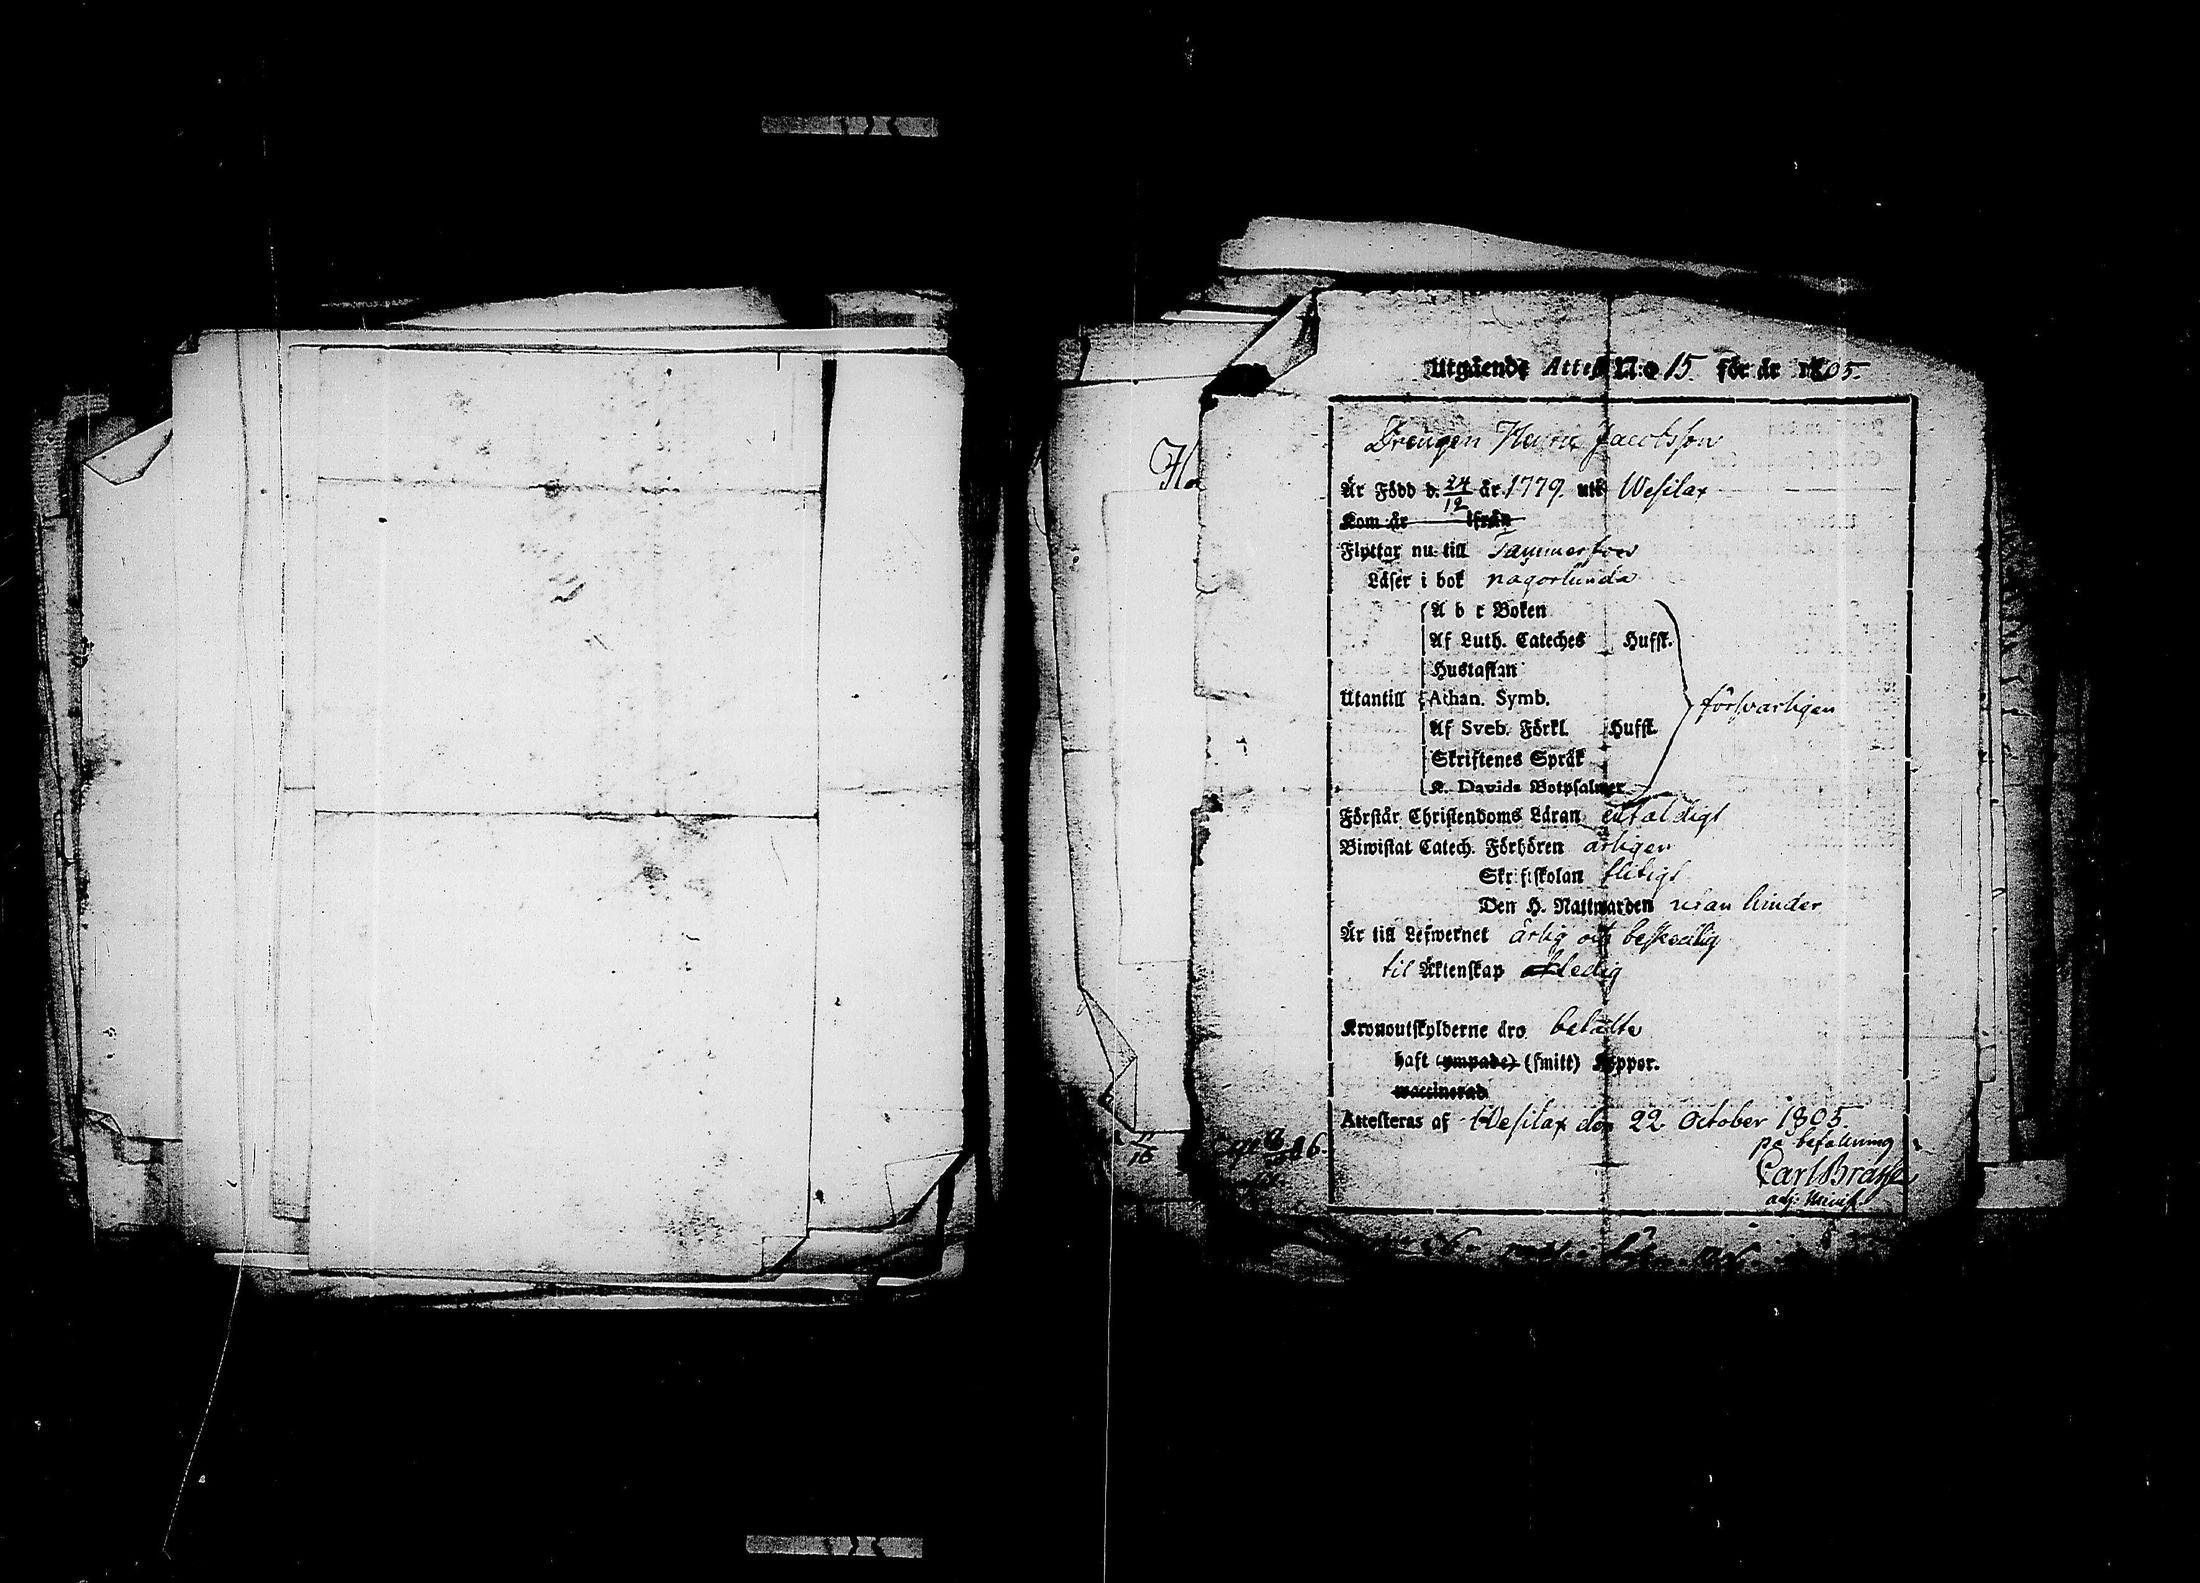 Utgående Attest N:o 15. för år 1805.
Drengen Jacobsson
Är Född d. 24/12 år 1779. uti Wesilax
Kom år ifrån
Flyttar nu till Tammerfors
Läser i bok någorlunda
A b c Boken
Af Luth. Cateches Hufst.
Hustaflan
Utantill Athan. Symb. försvarligen
Af Sveb. Förkl. Hufst.
Skriftenes Språk
K. Davids Botpsalmer
Förstår Christendoms Läran enfaldigt
Biwistat Catech. Förhören årligen
Skriftskolan flitigt
Den H. Nattwarden utan hinder
Är till Lefwernet ärlig och beskedlig
til Äktenskap ledig
Kronoutskylderne äro betalte
haft (ympade) (smitt) Koppor.
waccinerad
Attesteras af Wesilax den 22 October 1805.
på befallning
Carl
adj. Minist